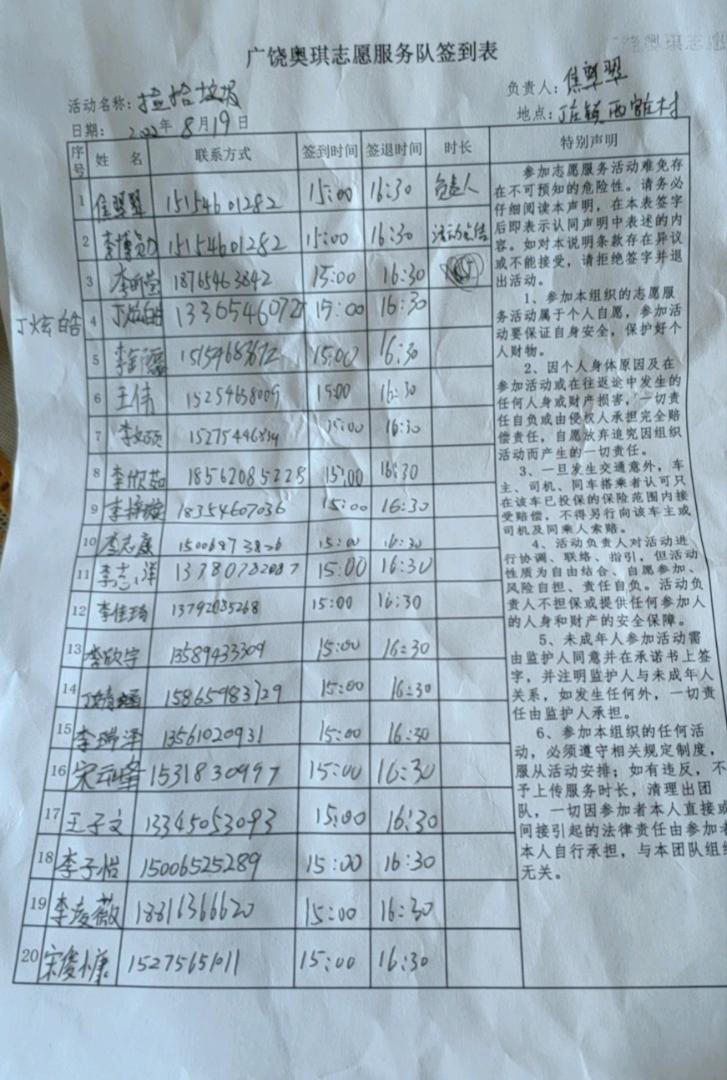 广饶奥琪志愿服务队签到表
活动名称：捡拾垃圾
负责人：
日期：2022年8月19日
地点：
序号 姓 名 联系方式 签到时间 签退时间 时长 特别声明
1 15154601282 15:00 16:30 负责人
2 15154601282 15:00 16:30
3 李昕萱 18765463842 15:00 16:30
丁炫皓
4 丁炫皓 15:00 16:30
5 15:00 16:30
6 王伟 15:00 16:30
7 15:00 16:30
8 李欣茹 18562085228 15:00 16:30
9 李梓璇 18354607036 15:00 16:30
10 李志康 15:00 16:30
11 李志洋 15:00 16:30
12 李佳琦 15:00 16:30
13 李欣宇 13589433309 15:00 16:30
14 15865983729 15:00 16:30
15 李瑞泽 13561020931 15:00 16:30
16 1531830997 15:00 16:30
17 王子文 13345053093 15:00 16:30
18 李子怡 15006525289 15:00 16:30
19 李凌薇 15:00 16:30
20 15275651011 15:00 16:30
参加志愿服务活动难免存
在不可预知的危险性。请务必
仔细阅读本声明，在本表签字
后即表示认同声明中表述的内
容。如对本说明条款存在异议
或不能接受，请拒绝签字并退
出活动。
1、参加本组织的志愿服
务活动属于个人自愿，参加活
动要保证自身安全，保护好个
人财物。
2、因个人身体原因及在
参加活动或在往返途中发生的
任何人身或财产损害，一切责
任自负或由侵权人承担完全赔
偿责任，自愿放弃追究因组织
活动而产生的一切责任。
3、一旦发生交通意外，车
主、司机、同车搭乘者认可只
在该车已投保的保险范围内接
受赔偿，不得另行向该车主或
司机及同乘人索赔。
4、活动负责人对活动进
行协调、联络、指引，但活动
性质为自由结合、自愿参加、
风险自担、责任自负。活动负
责人不担保或提供任何参加人
的人身和财产的安全保障。
5、未成年人参加活动需
由监护人同意并在承诺书上签
字，并注明监护人与未成年人
关系，如发生任何外，一切责
任由监护人承担。
6、参加本组织的任何活
动，必须遵守相关规定制度，
服从活动安排；如有违反，不
予上传服务时长，清理出团
队，一切因参加者本人直接或
间接引起的法律责任由参加者
本人自行承担，与本团队组织
无关。